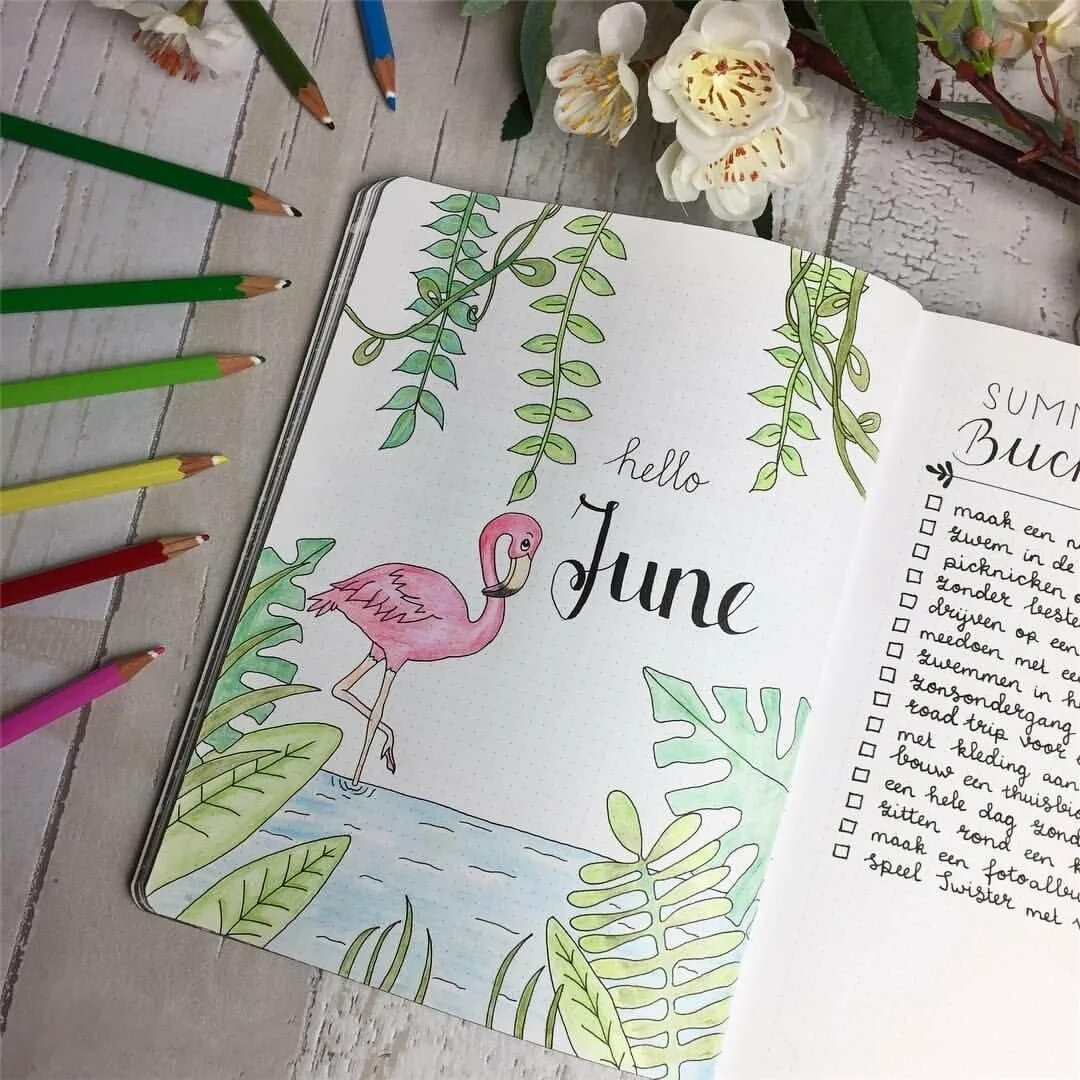 hello
June
SUMM
Buck
maak een
zwem in de
picknicken
zonder beste
drijven op een
meedoen met ee
zwemmen in h
zonsondergang
road trip voor
met kleding aan
bouw een thuisbi
een hele dag zond
zitten rond een k
maak een fotoalbu
speel Twister met